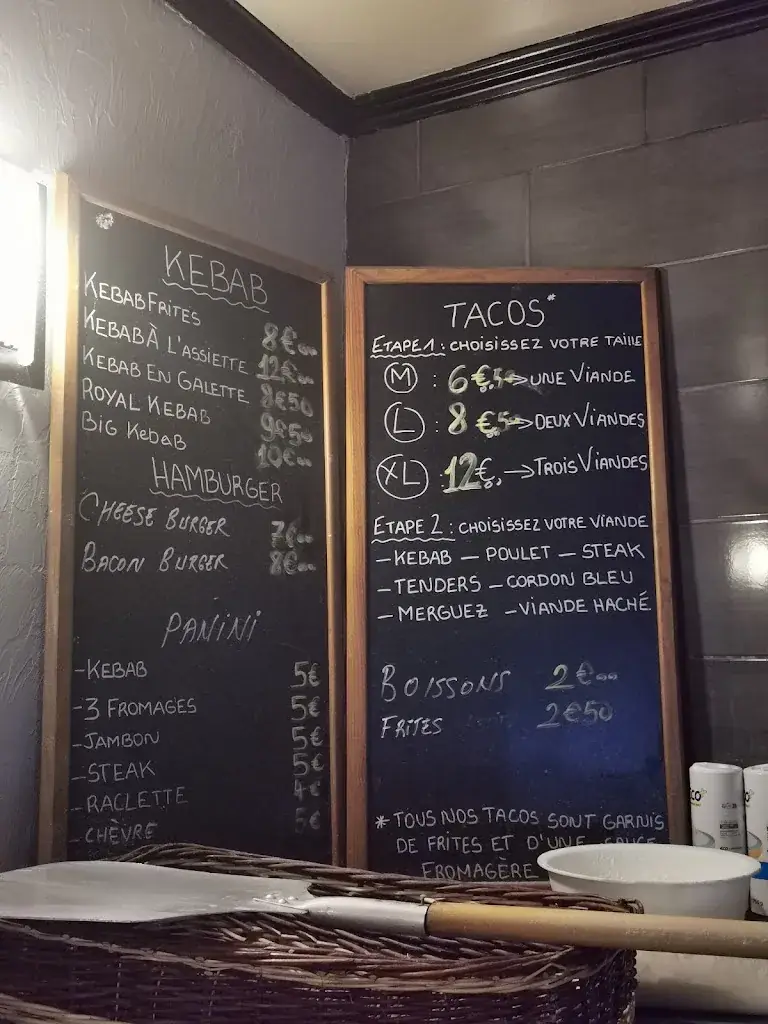 KEBAB
KEBAB FRITES 8€00
KEBAB À L'ASSIETTE 12€00
KEBAB EN GALETTE 8€50
ROYAL KEBAB 9€50
BIG KEBAB 10€00
HAMBURGER
CHEESE BURGER 7€00
BACON BURGER 8€00
PANINI
-KEBAB 5€
-3 FROMAGES 5€
-JAMBON 5€
-STEAK 5€
-RACLETTE 4€
-CHÈVRE 5€
TACOS*
ETAPE 1 : CHOISISSEZ VOTRE TAILLE
M : 6€,50→UNE VIANDE
L : 8€,50→DEUX VIANDES
XL : 12€, →TROIS VIANDES
ETAPE 2 : CHOISISSEZ VOTRE VIANDE
-KEBAB - POULET - STEAK
-TENDERS - CORDON BLEU
-MERGUEZ -VIANDE HACHÉ
BOISSONS 2€00
FRITES 2€50
*TOUS NOS TACOS SONT GARNIS
DE FRITES ET D'UNE SAUCE
FROMAGÈRE